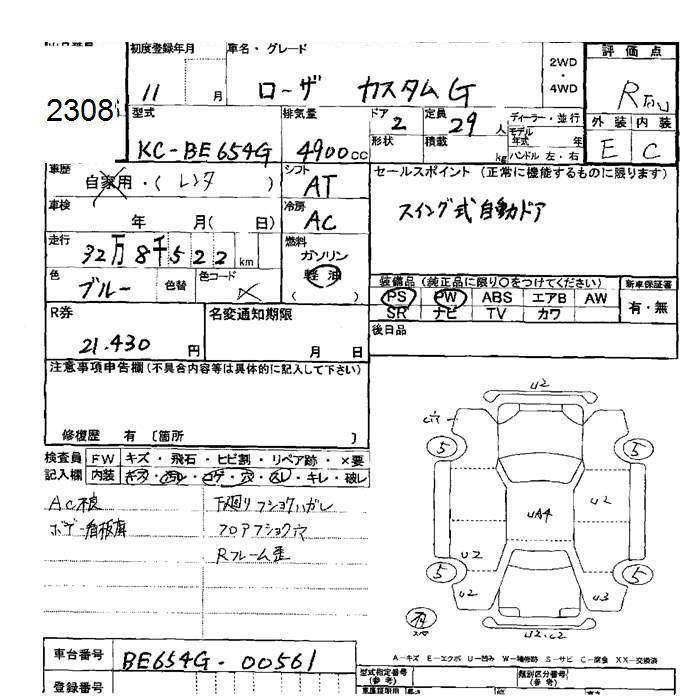 初度登録年月 車名・グレード 評価点
11 月 ローザ カスタムG 2WD・4WD R
2308
型式 排気量 ドア 定員 ディーラー・並行 外装 内装
KC-BE654G 4900cc 2 29人 モデル年式 年 E C
形状 積載 kg ハンドル 左・右
車歴 シフト セールスポイント (正常に機能するものに限ります)
自家用・(レンタ) AT スイング式自動ドア
車検 冷房
年 月( 日) AC
走行 燃料
32万8千522km ガソリン
色 色替 色コード 軽油
ブルー ( )
装備品 (純正品に限り○をつけてください) 新車保証書
PS PW ABS エアB AW 有・無
SR ナビ TV カワ
R券 名変通知期限 後日品
21.430円 月 日
注意事項申告欄(不具合内容等は具体的に記入して下さい)
修復歴 有 〔箇所 〕
検査員 FW キズ・飛石・ヒビ割・リペア跡・×要
記入欄 内装 キズ・汚レ・コゲ・穴・スレ・キレ・破レ
AC検 下廻りフショクハガレ
ボデー看板痕 フロアフショク穴
Rフレーム歪
U2
穴
5 5
UA4 U2
U2
5 5
U2 U3
U2.C2
A-キズ E-エクボ U-凹み W-補修跡 S-サビ C-腐食 XX-交換済
車台番号 BE654G-00561 型式指定番号(参考) 類別区分番号(参考)
登録番号